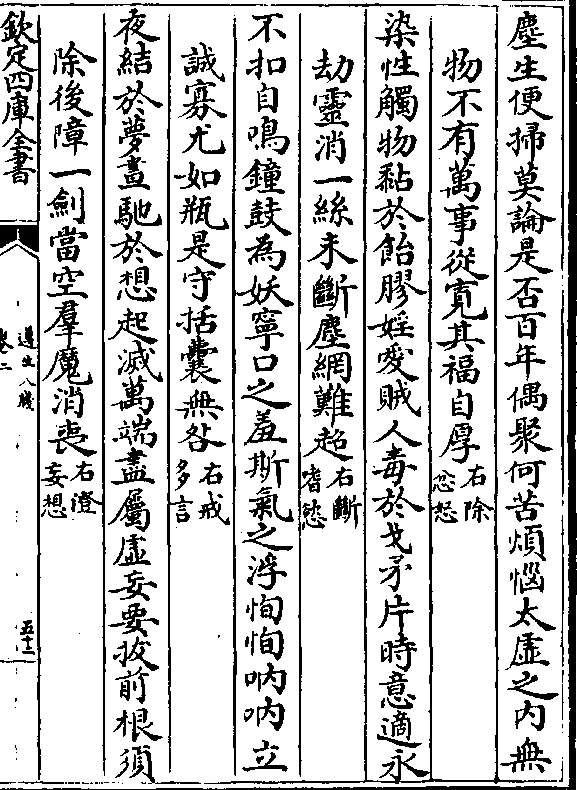 塵生便掃莫論是否百年偶聚何苦煩惱太虛之内無
物不有萬事從寛其福自厚右除忿怒
染性觸物黏於飴膠婬愛賊人毒於戈矛片時意適永
劫靈消一絲未斷塵網難超右斷嗜慾
不扣自鳴鐘鼓為妖寧口之羞斯氣之浮恂恂吶吶立
誠寡尤如瓶是守括囊無咎右戒多言
夜結於夢晝馳於想起滅萬端盡屬虛妄要拔前根須
除後障一劍當空羣魔消喪右澄妄想
欽定四庫全書
遵生八牋
卷二
五十二